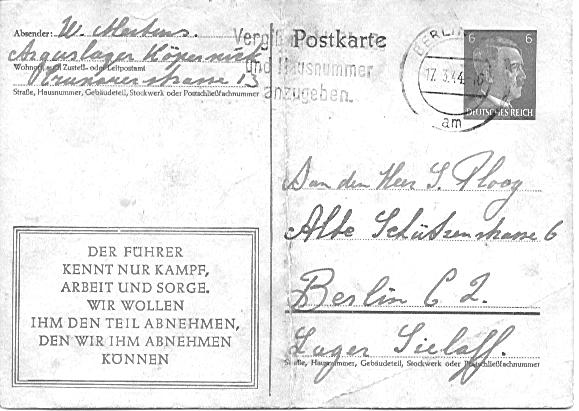 Absender: W. Martens.
Arguslager Köpenick
Wohnort, auch Zustell- oder Leitpostamt
Grunauerstrasse 15
Straße, Hausnummer, Gebäudeteil, Stockwerk oder Postschließfachnummer
und Hausnummer
anzugeben.
Postkarte
BERLIN
17.3.44
am
6 6
DEUTSCHES REICH
DER FÜHRER
KENNT NUR KAMPF,
ARBEIT UND SORGE.
WIR WOLLEN
IHM DEN TEIL ABNEHMEN,
DEN WIR IHM ABNEHMEN
KÖNNEN
Aan den Heer S. Ploog
Alte Schützenstrasse 6
Berlin C 2.
Lager Sielaff.
Straße, Hausnummer, Gebäudeteil, Stockwerk oder Postschließfachnummer